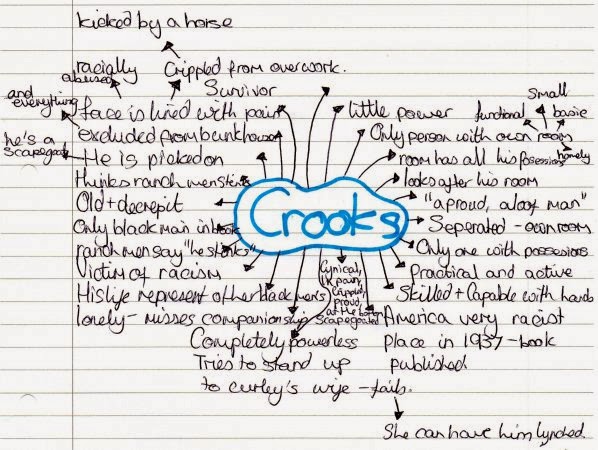 kicked by a horse
racially abused
Crippled from overwork.
Survivor
and everything
face is lined with pain
excluded from bunkhouse
he's a scapegoat
He is picked on
thinks ranch men stink
Old + decrepit
Only black man in book
ranch men say "he stinks"
Victim of racism
His life represent other black men's
lonely - misses companionship
Completely powerless
Tries to stand up
to curley's wife - fails.
Crooks
Cynical,
in pain,
Crippled,
proud,
at the bottom
scapegoated
little power
Small
functional
basic
homely
Only person with own room
room has all his possessions
looks after his room
"a proud, aloof man"
Seperated - own room
Only one with possessions
Practical and active
Skilled + Capable with hands
America very racist
place in 1937 - book
published.
She can have him lynched.